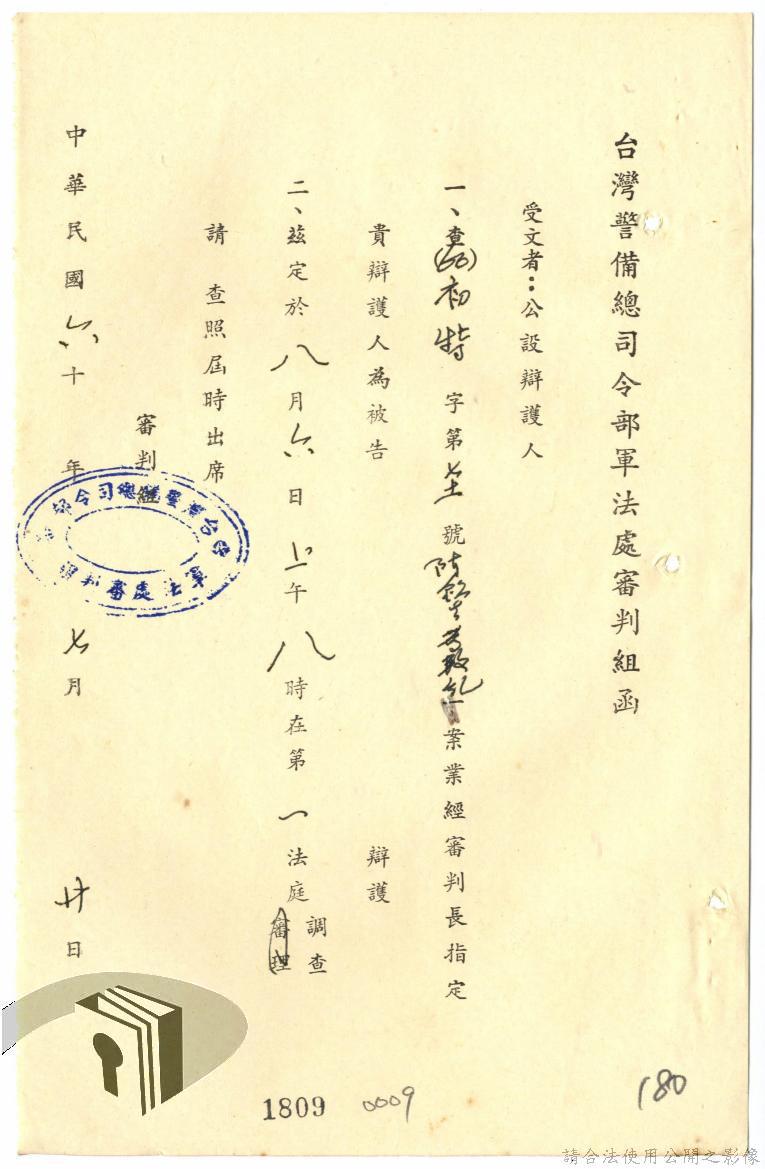 台灣警備總司令部軍法處審判組函
受文者：公設辯護人
一、查(60)初特字第號叛亂案業經審判長指定
貴辯護人為被告 辯護
二、茲定於八月六日上午八時在第一法庭調查
審理
請 查照屆時出席
審判組
中華民國六十年七月廿日
180
0009
1809
請合法使用公開之影像